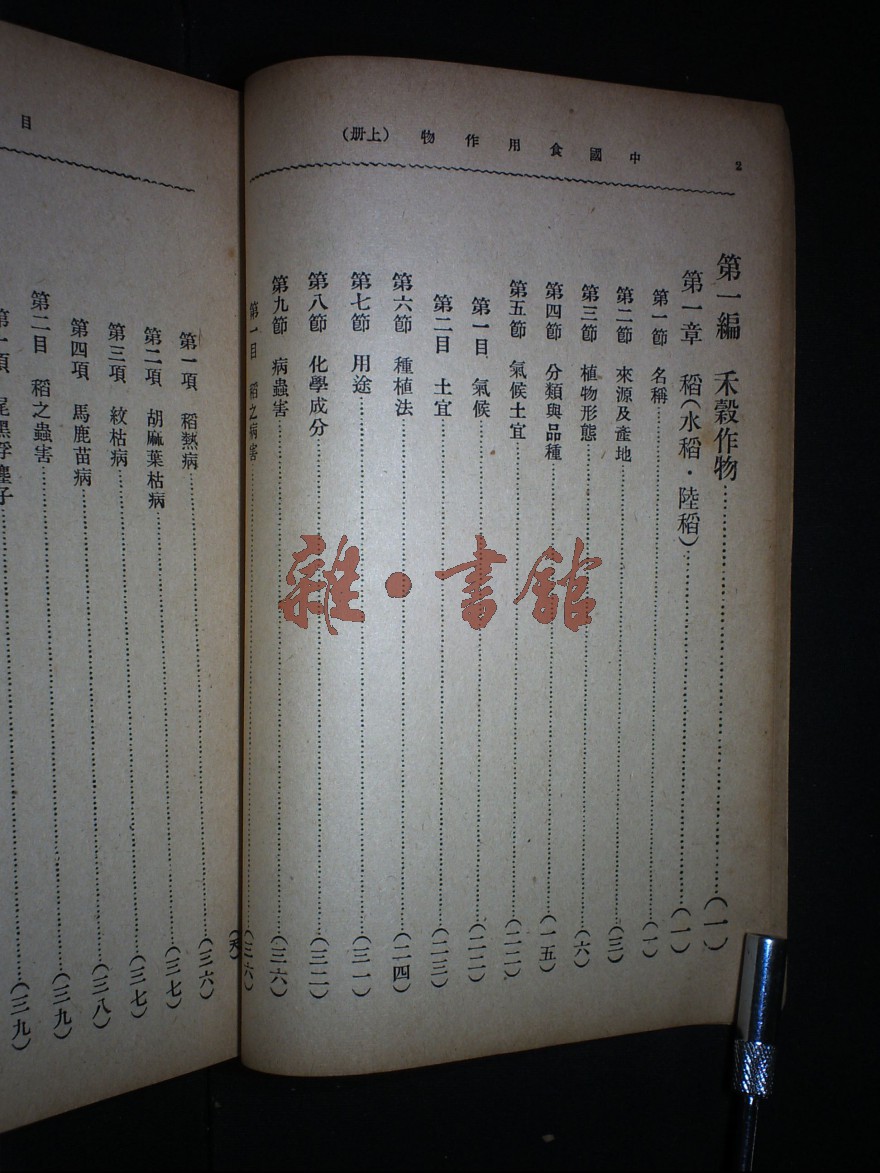 2
中國食用作物（上册）
第一編　禾穀作物……（一）
第一章　稻（水稻・陸稻）……（一）
第一節　名稱……（一）
第二節　來源及產地……（三）
第三節　植物形態……（六）
第四節　分類與品種……（一五）
第五節　氣候土宜……（二二）
第一目　氣候……（二二）
第二目　土宜……（二三）
第六節　種植法……（二四）
第七節　用途……（三一）
第八節　化學成分……（三二）
第九節　病蟲害……（三六）
第一目　稻之病害……（三六）
目
第一項　稻熱病……（三六）
第二項　胡麻葉枯病……（三七）
第三項　紋枯病……（三七）
第四項　馬鹿苗病……（三八）
第二目　稻之蟲害……（三九）
第一項　尾黑浮塵子……（三九）
雜・書館